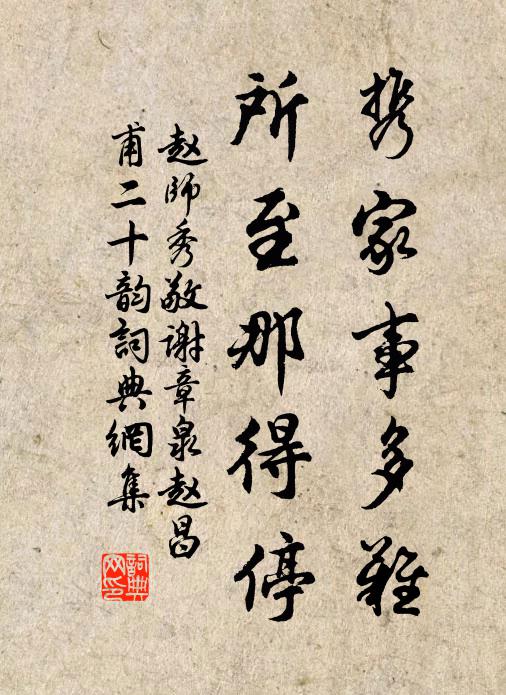 携家事多难
所至那得停
赵師秀敬谢章泉赵昌
甫二十韵詞典網集
詞典
网印